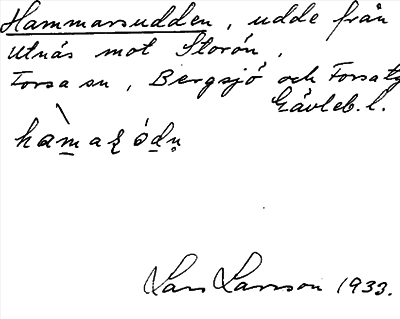 Hammarsudden, udde från
Utnäs mot Storön,
Forsa sn, Bergsjö och Forsa tg
Gävleb. l.
Lars Larsson 1933.